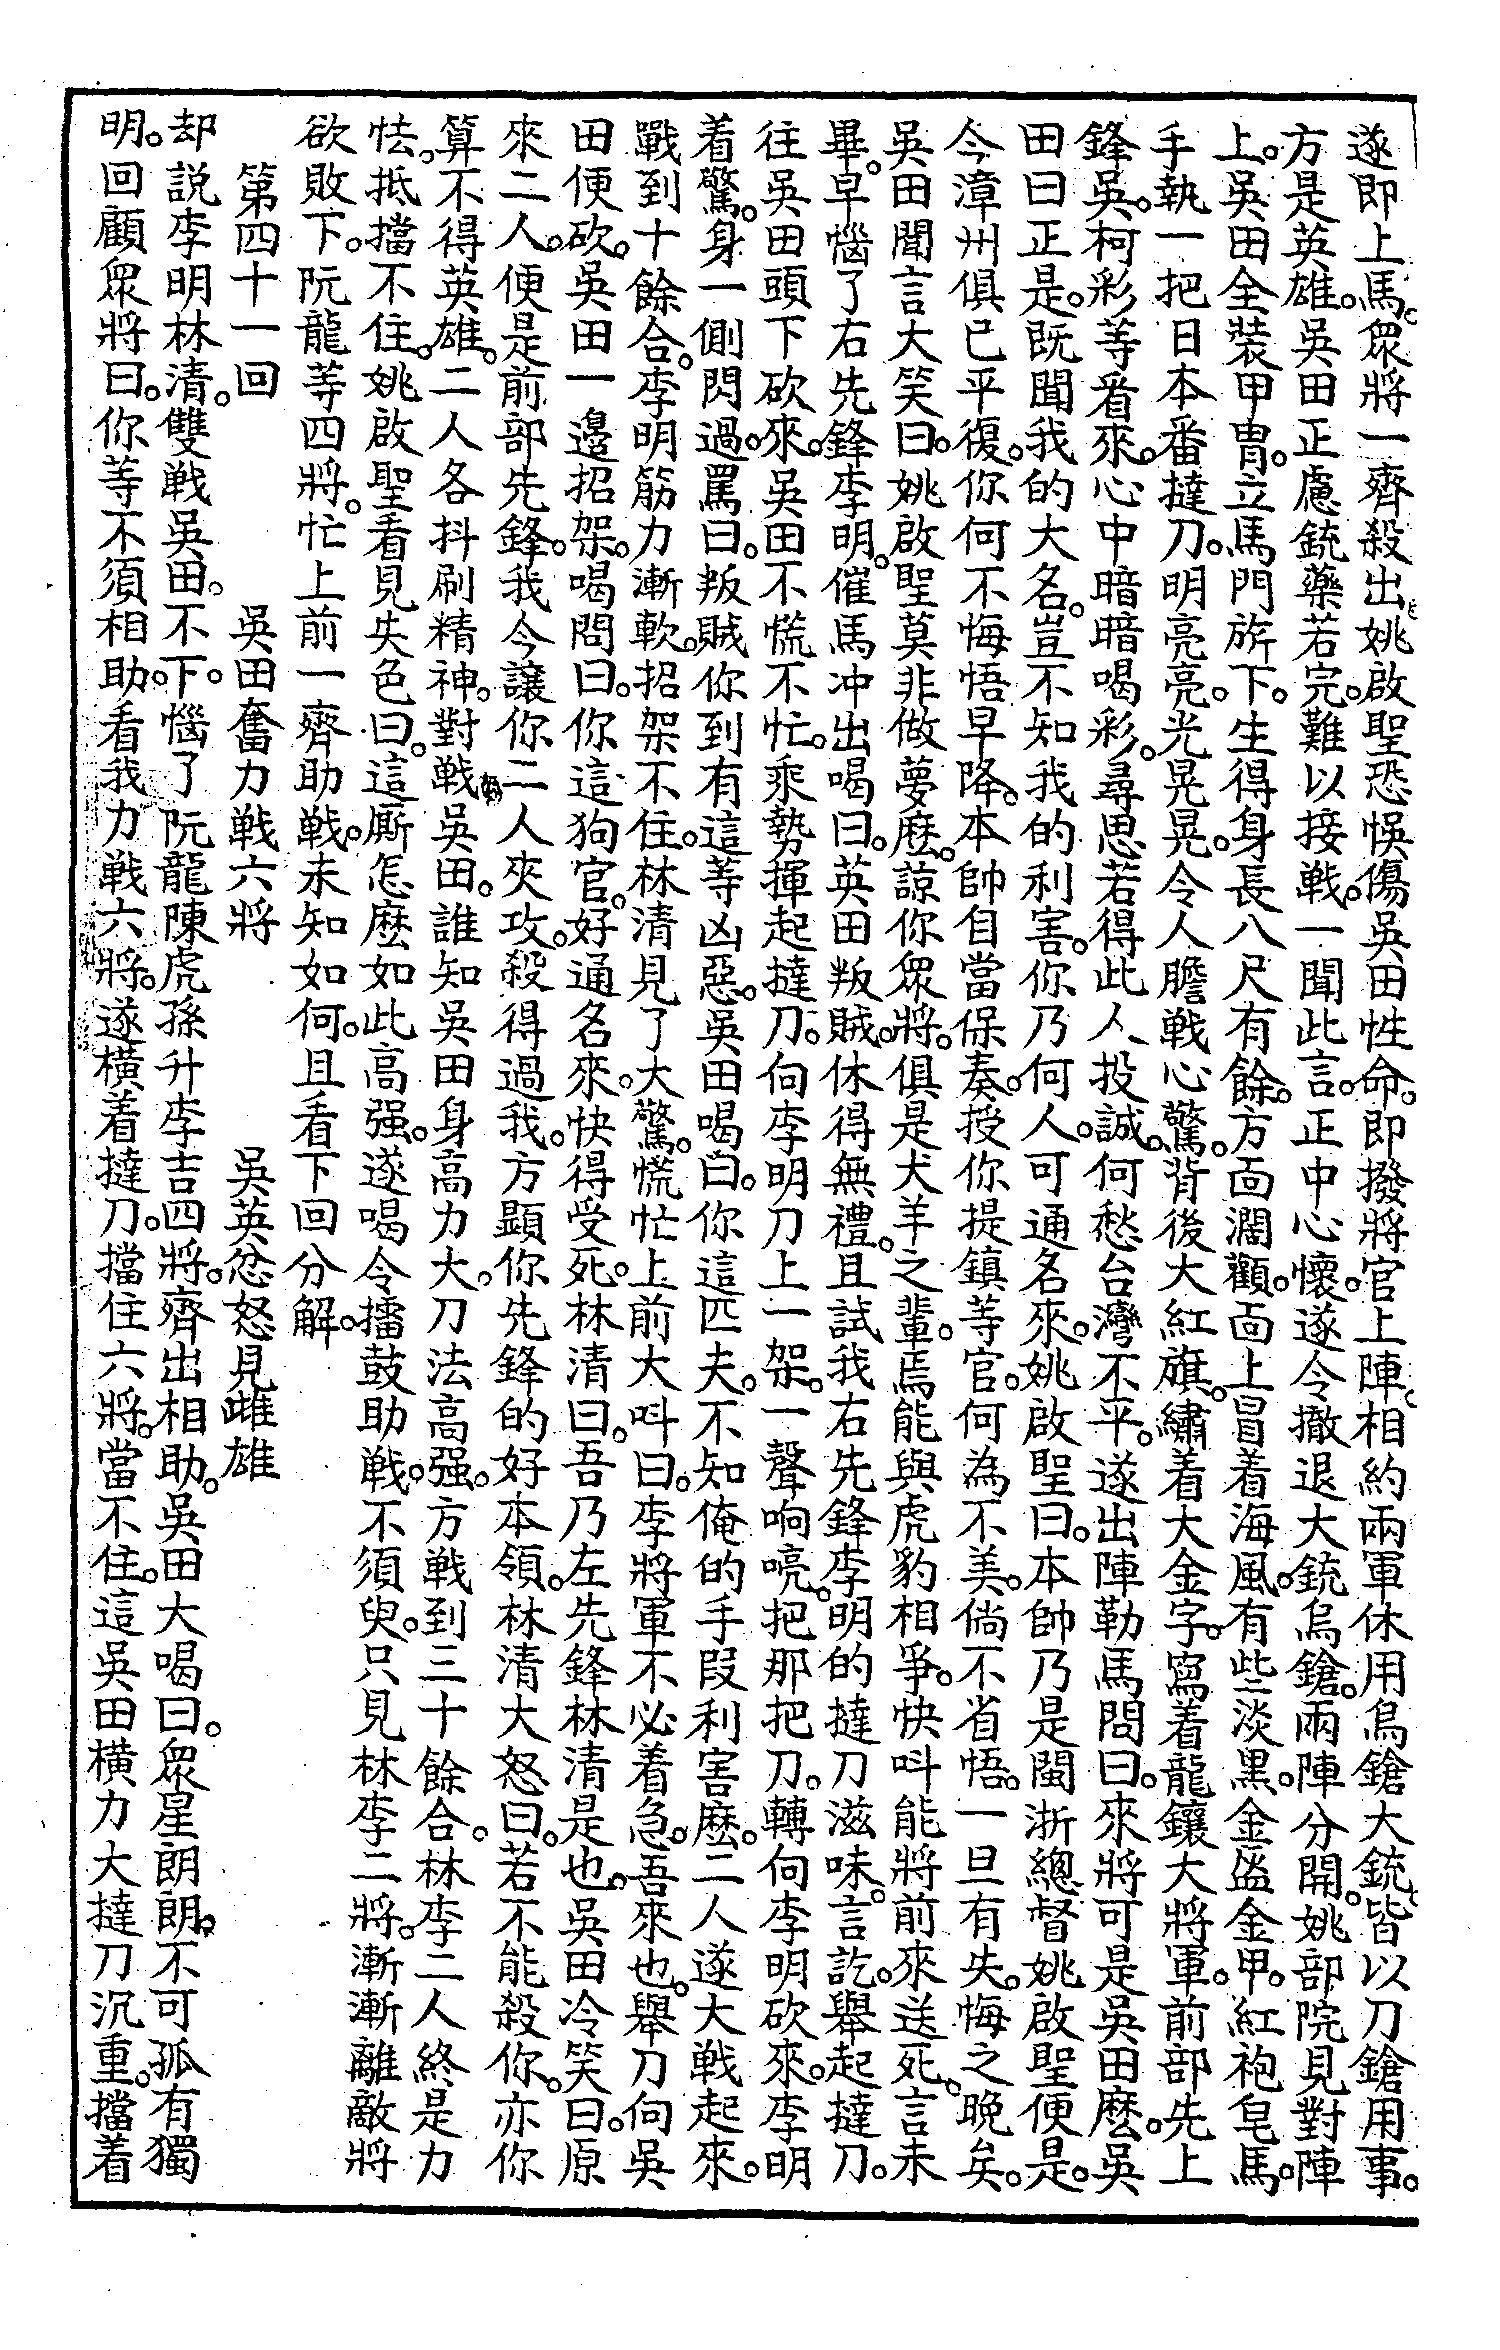 遂即上馬。眾將一齊殺出。姚啟聖恐悞傷吳田性命。即撥將官上陣。相約兩軍休用鳥鎗大銃。皆以刀鎗用事。
方是英雄。吳田正慮銃藥若完。難以接戦。一聞此言。正中心懷。遂令撤退大銃鳥鎗。兩陣分開。姚部院見對陣
上。吳田全裝甲冑。立馬門旂下。生得身長八尺有餘。方面濶顴。面上冒着海風。有些淡黑。金盔金甲。紅袍皂馬。
手執一把日本番撻刀。明亮亮。光晃晃。令人膽戦心驚。背後大紅旗。繡着大金字。寫着龍鑲大將軍。前部先上
鋒。吳。柯彩等看來。心中暗暗喝彩。尋思若得此人投誠。何愁台灣不平。遂出陣勒馬問曰。來將可是吳田麽。吳
田曰正是。既聞我的大名。豈不知我的利害。你乃何人。可通名來。姚啟聖曰。本帥乃是閩浙總督姚啟聖便是。
今漳州俱已平復。你何不悔悟早降。本帥自當保奏。授你提鎮等官。何為不美。倘不省悟。一旦有失。悔之晚矣。
吳田聞言大笑曰。姚啟聖莫非做夢麽。諒你眾將。俱是犬羊之輩。焉能與虎豹相爭。快呌能將前來送死。言未
畢。早惱了右先鋒李明。催馬冲出喝曰。英田叛賊。休得無禮。且試我右先鋒李明的撻刀滋味。言訖。舉起撻刀。
往吳田頭下砍來。吳田不慌不忙。乘勢揮起撻刀。向李明刀上一架。一聲响喨。把那把刀。轉向李明砍來。李明
着驚。身一側閃過。罵曰。叛賊你到有這等凶惡。吳田喝曰。你這匹夫。不知俺的手段利害麽。二人遂大戦起來。
戰到十餘合。李明筋力漸軟。招架不住。林清見了大驚。慌忙上前大呌曰。李將軍不必着急。吾來也。舉刀向吳
田便砍。吳田一邉招架。喝問曰。你這狗官。好通名來。快得受死。林清曰。吾乃左先鋒林清是也。吳田冷笑曰。原
來二人。便是前部先鋒。我今讓你二人夾攻。殺得過我。方顯你先鋒的好本領。林清大怒曰。若不能殺你。亦你
算不得英雄。二人各抖刷精神。對戦吳田。誰知吳田身高力大。刀法高强。方戦到三十餘合。林李二人終是力
怯。抵擋不住。姚啟聖看見失色曰。這厮怎麽如此高强。遂喝令擂鼓助戦。不須臾。只見林李二將。漸漸離敵將
欲敗下。阮龍等四將。忙上前一齊助戦。未知如何。且看下回分解。
第四十一回　吳田奮力戦六將　吳英忿怒見雌雄
却説李明林清。雙戦吳田。不下。惱了阮龍陳虎孫升李吉四將。齊出相助。吳田大喝曰。眾星朗朗。不可孤有獨
明。回顧眾將曰。你等不須相助。看我力戦六將。遂横着撻刀。擋住六將。當不住。這吳田横力大撻刀沉重。擋着